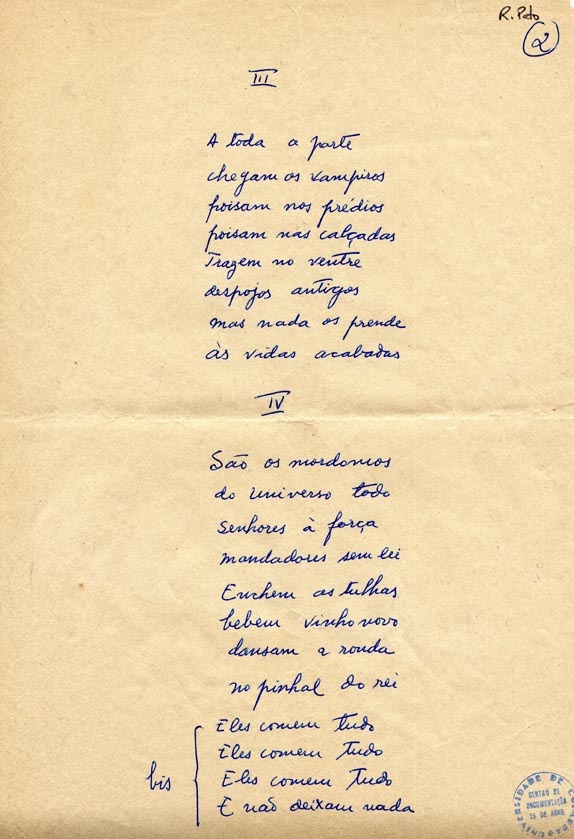 R. Pato
2
III
A toda a parte
chegam os vampiros
poisam nos prédios
poisam nas calçadas
Trazem no ventre
despojos antigos
mas nada os prende
às vidas acabadas
IV
São os mordomos
do universo todo
Senhores à força
mandadores sem lei
Enchem as tulhas
bebem vinho novo
dansam a ronda
no pinhal do rei
Eles comem tudo
Eles comem Tudo
bis
Eles comem Tudo
E não deixam nada
CENTRO DE
DOCUMENTAÇÃO
25 DE ABRIL